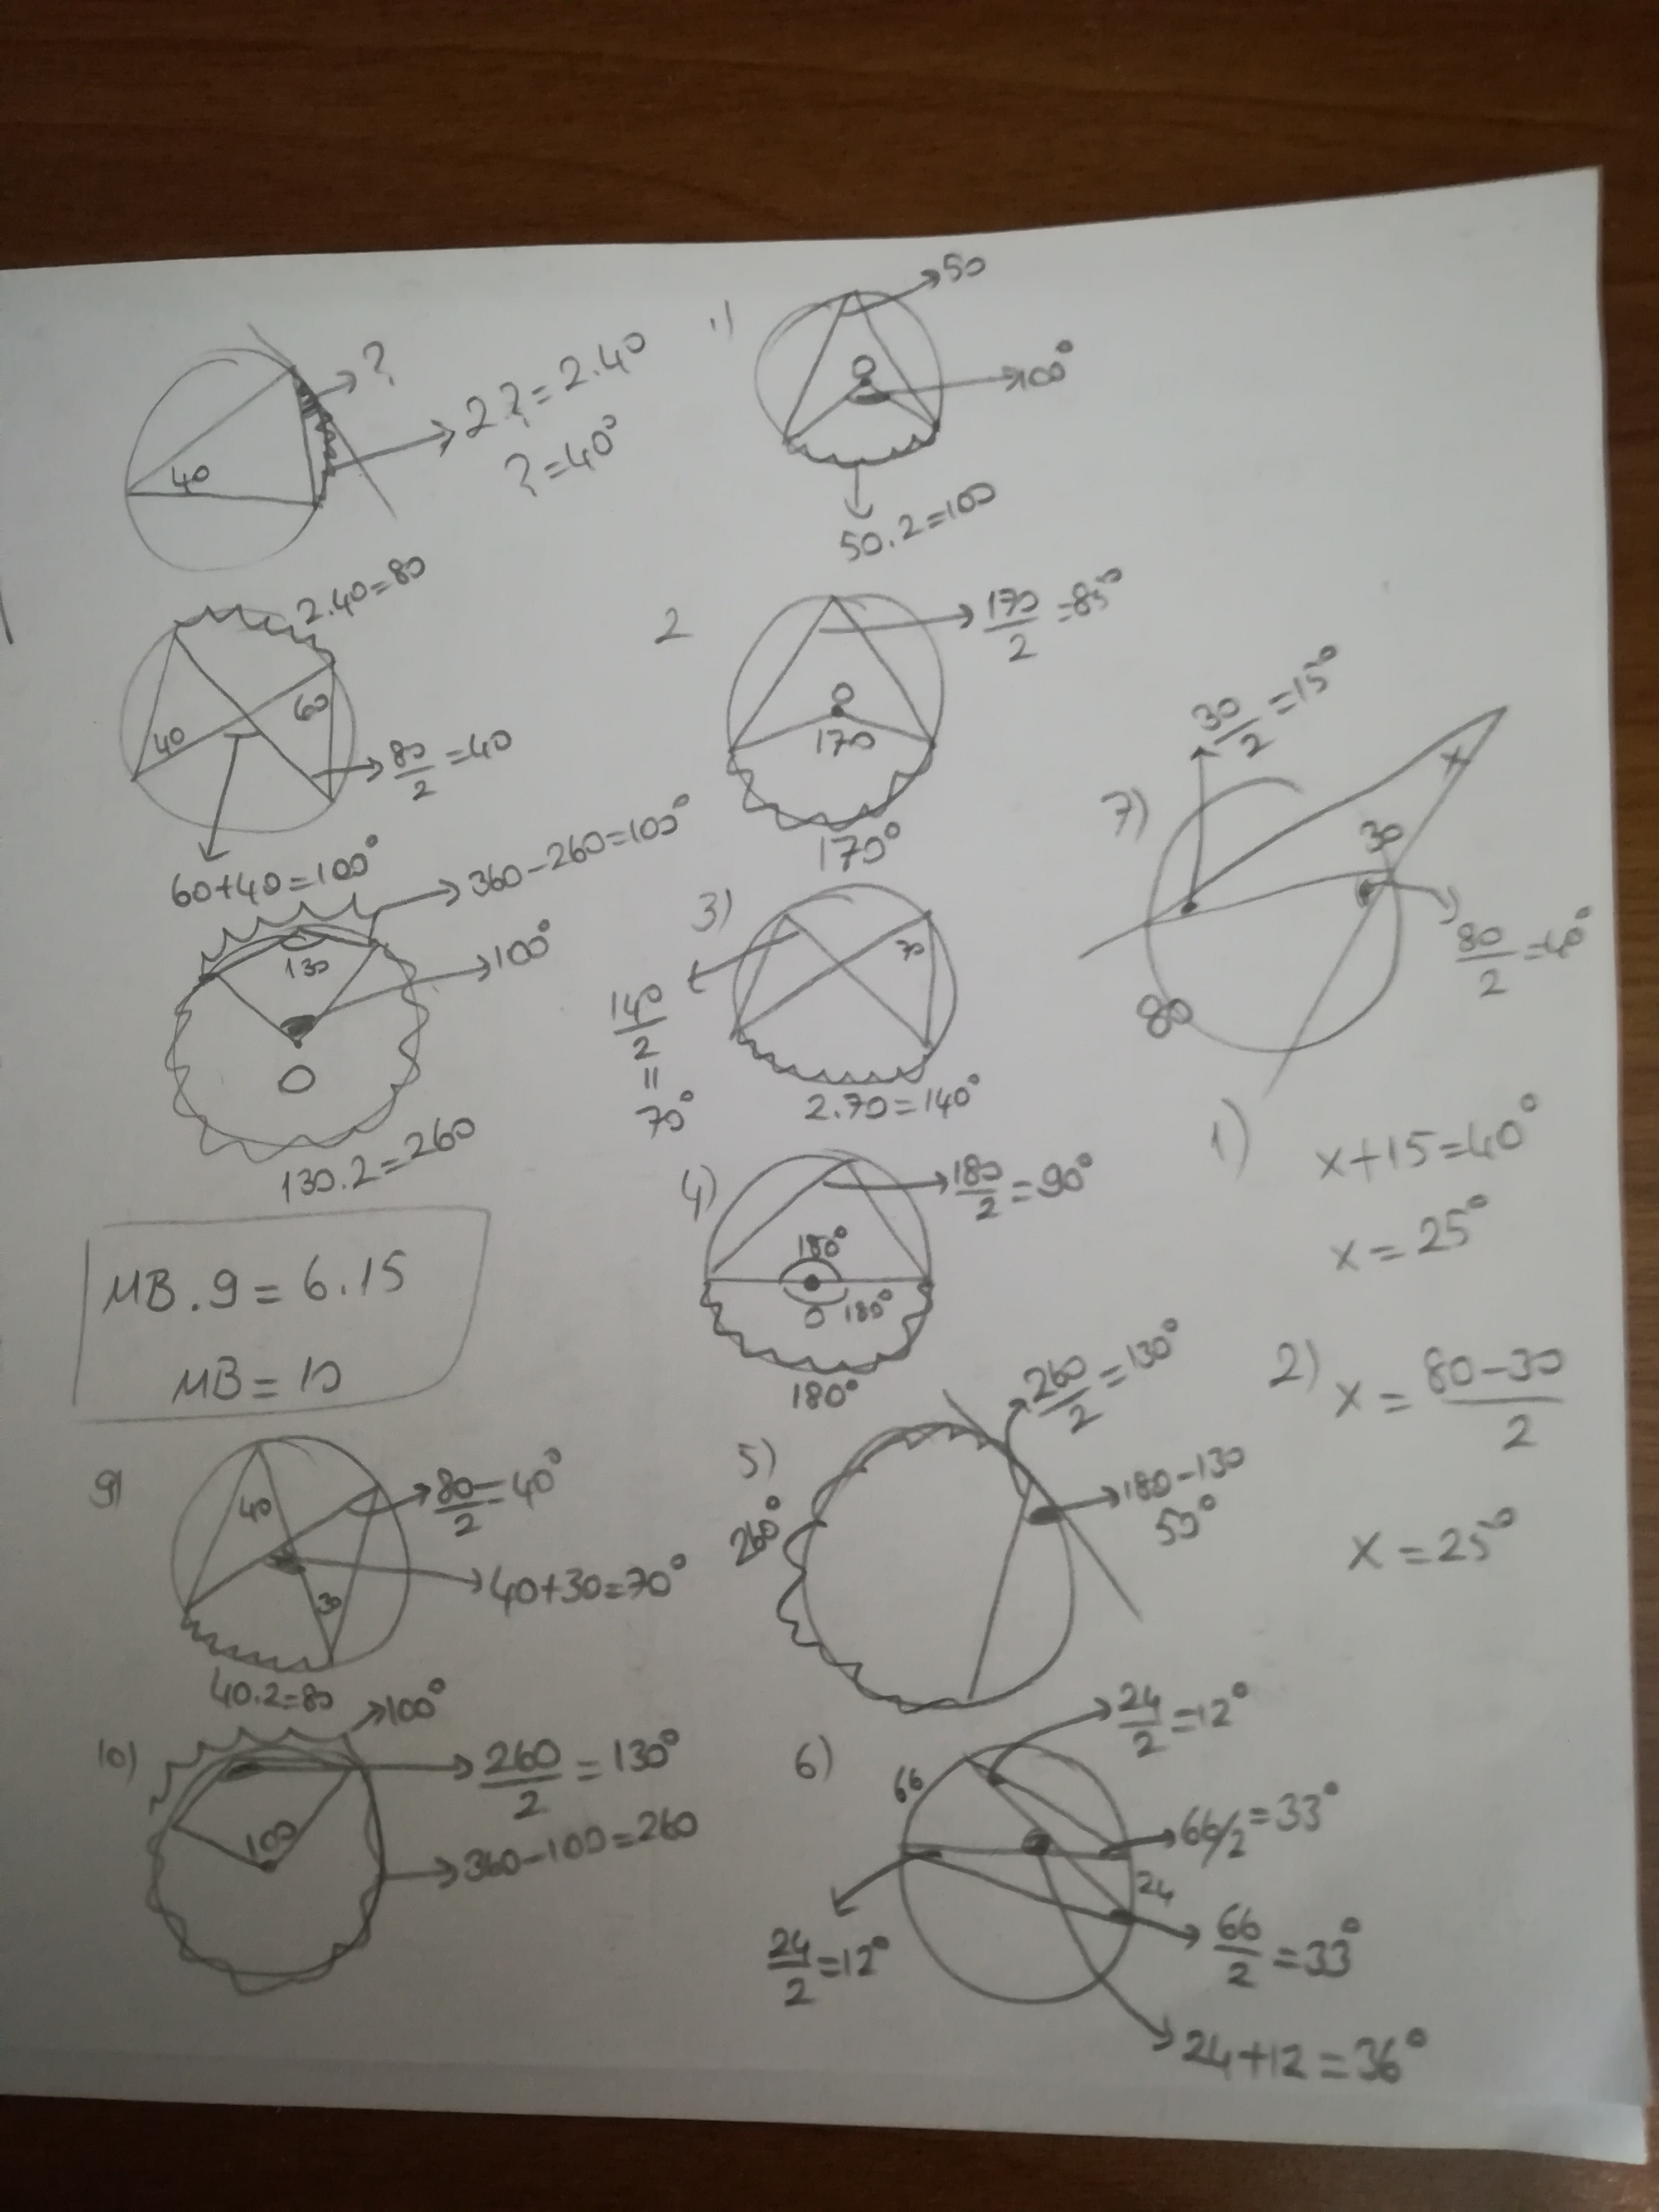 ?
40
2?=2.40
?=40°
2.40=80
40
60
80/2=40
60+40=100°
360-260=100°
130
100°
O
130.2=260
MB.9=6.15
MB=10
9)
40
80/2=40°
40+30=70°
30
40.2=80
10)
100°
260/2=130°
100
360-100=260
1)
50
O
100°
50.2=100
2
170/2=85°
O
170
170°
3)
70
140/2
=
70°
2.70=140°
4)
180/2=90°
180°
O 180°
180°
5)
260/2=130°
260°
180-130
50°
6)
24/2=12°
66
66/2=33°
24
66/2=33°
24/2=12°
24+12=36°
7)
30/2=15°
x
30
80/2=40°
80
1)
x+15=40°
x=25°
2)
x=80-30/2
x=25°